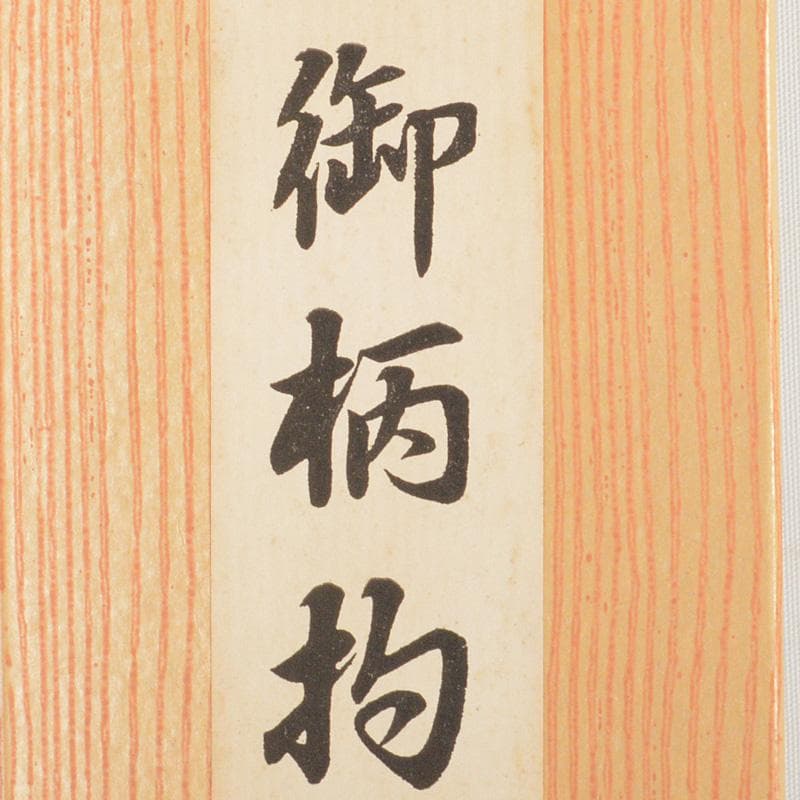 御柄杓